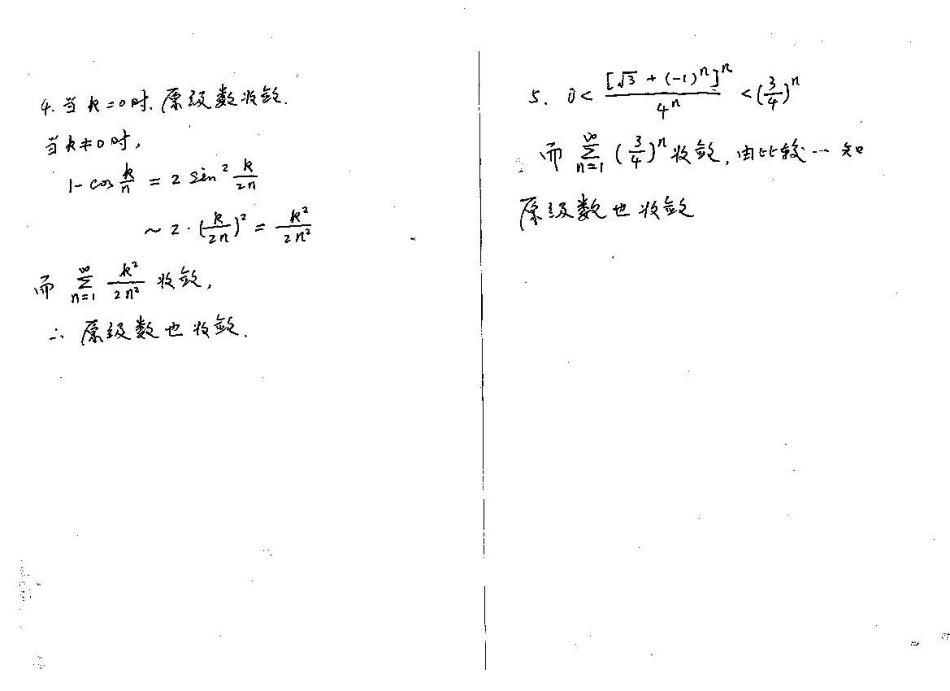 4. 当 k = 0 时, 原级数收敛.
当 k ≠ 0 时,
1 - cos k/n = 2 sin² k/2n
~ 2 · (k/2n)² = k²/2n²
而 ∑_{n=1}^{∞} k²/2n² 收敛,
∴ 原级数也收敛.
5. 0 < [√3 + (-1)ⁿ]ⁿ/4ⁿ < (3/4)ⁿ
而 ∑_{n=1}^{∞} (3/4)ⁿ 收敛, 由比较… 知
原级数也收敛